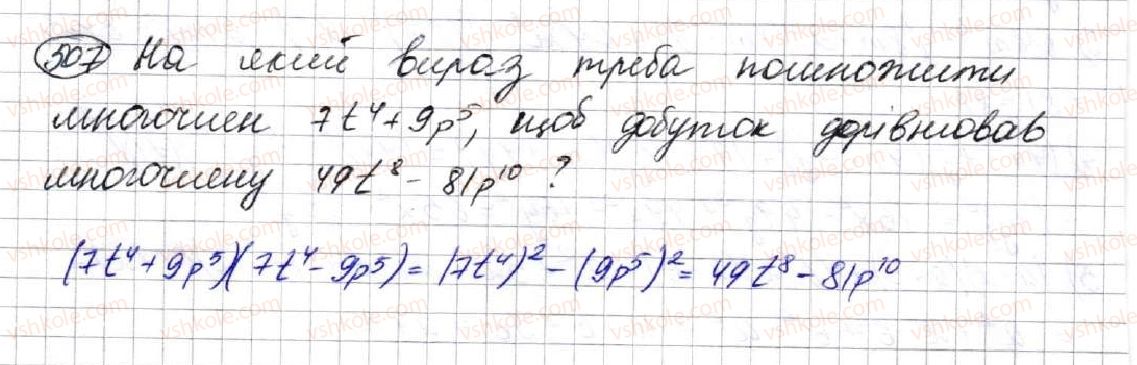 507 На який вираз треба помножити
многочлен 7t⁴+9p⁵, щоб добуток дорівнював
многочлену 49t⁸ - 81p¹⁰ ?
(7t⁴+9p⁵)(7t⁴-9p⁵) = (7t⁴)² - (9p⁵)² = 49t⁸ - 81p¹⁰